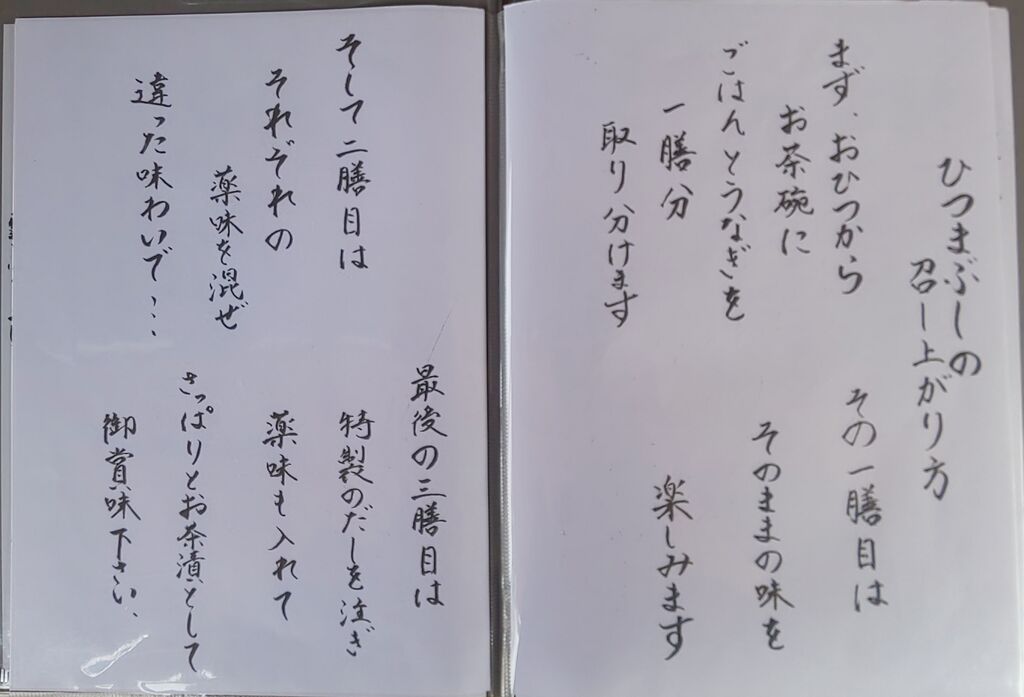 ひつまぶしの
召し上がり方
まず、おひつから
お茶碗に
ごはんとうなぎを
一膳分
取り分けます
その一膳目は
そのままの味を
楽しみます
そして二膳目は
それぞれの
薬味を混ぜ
違った味わいで…
最後の三膳目は
特製のだしを注ぎ
薬味も入れて
さっぱりとお茶漬として
御賞味下さい、